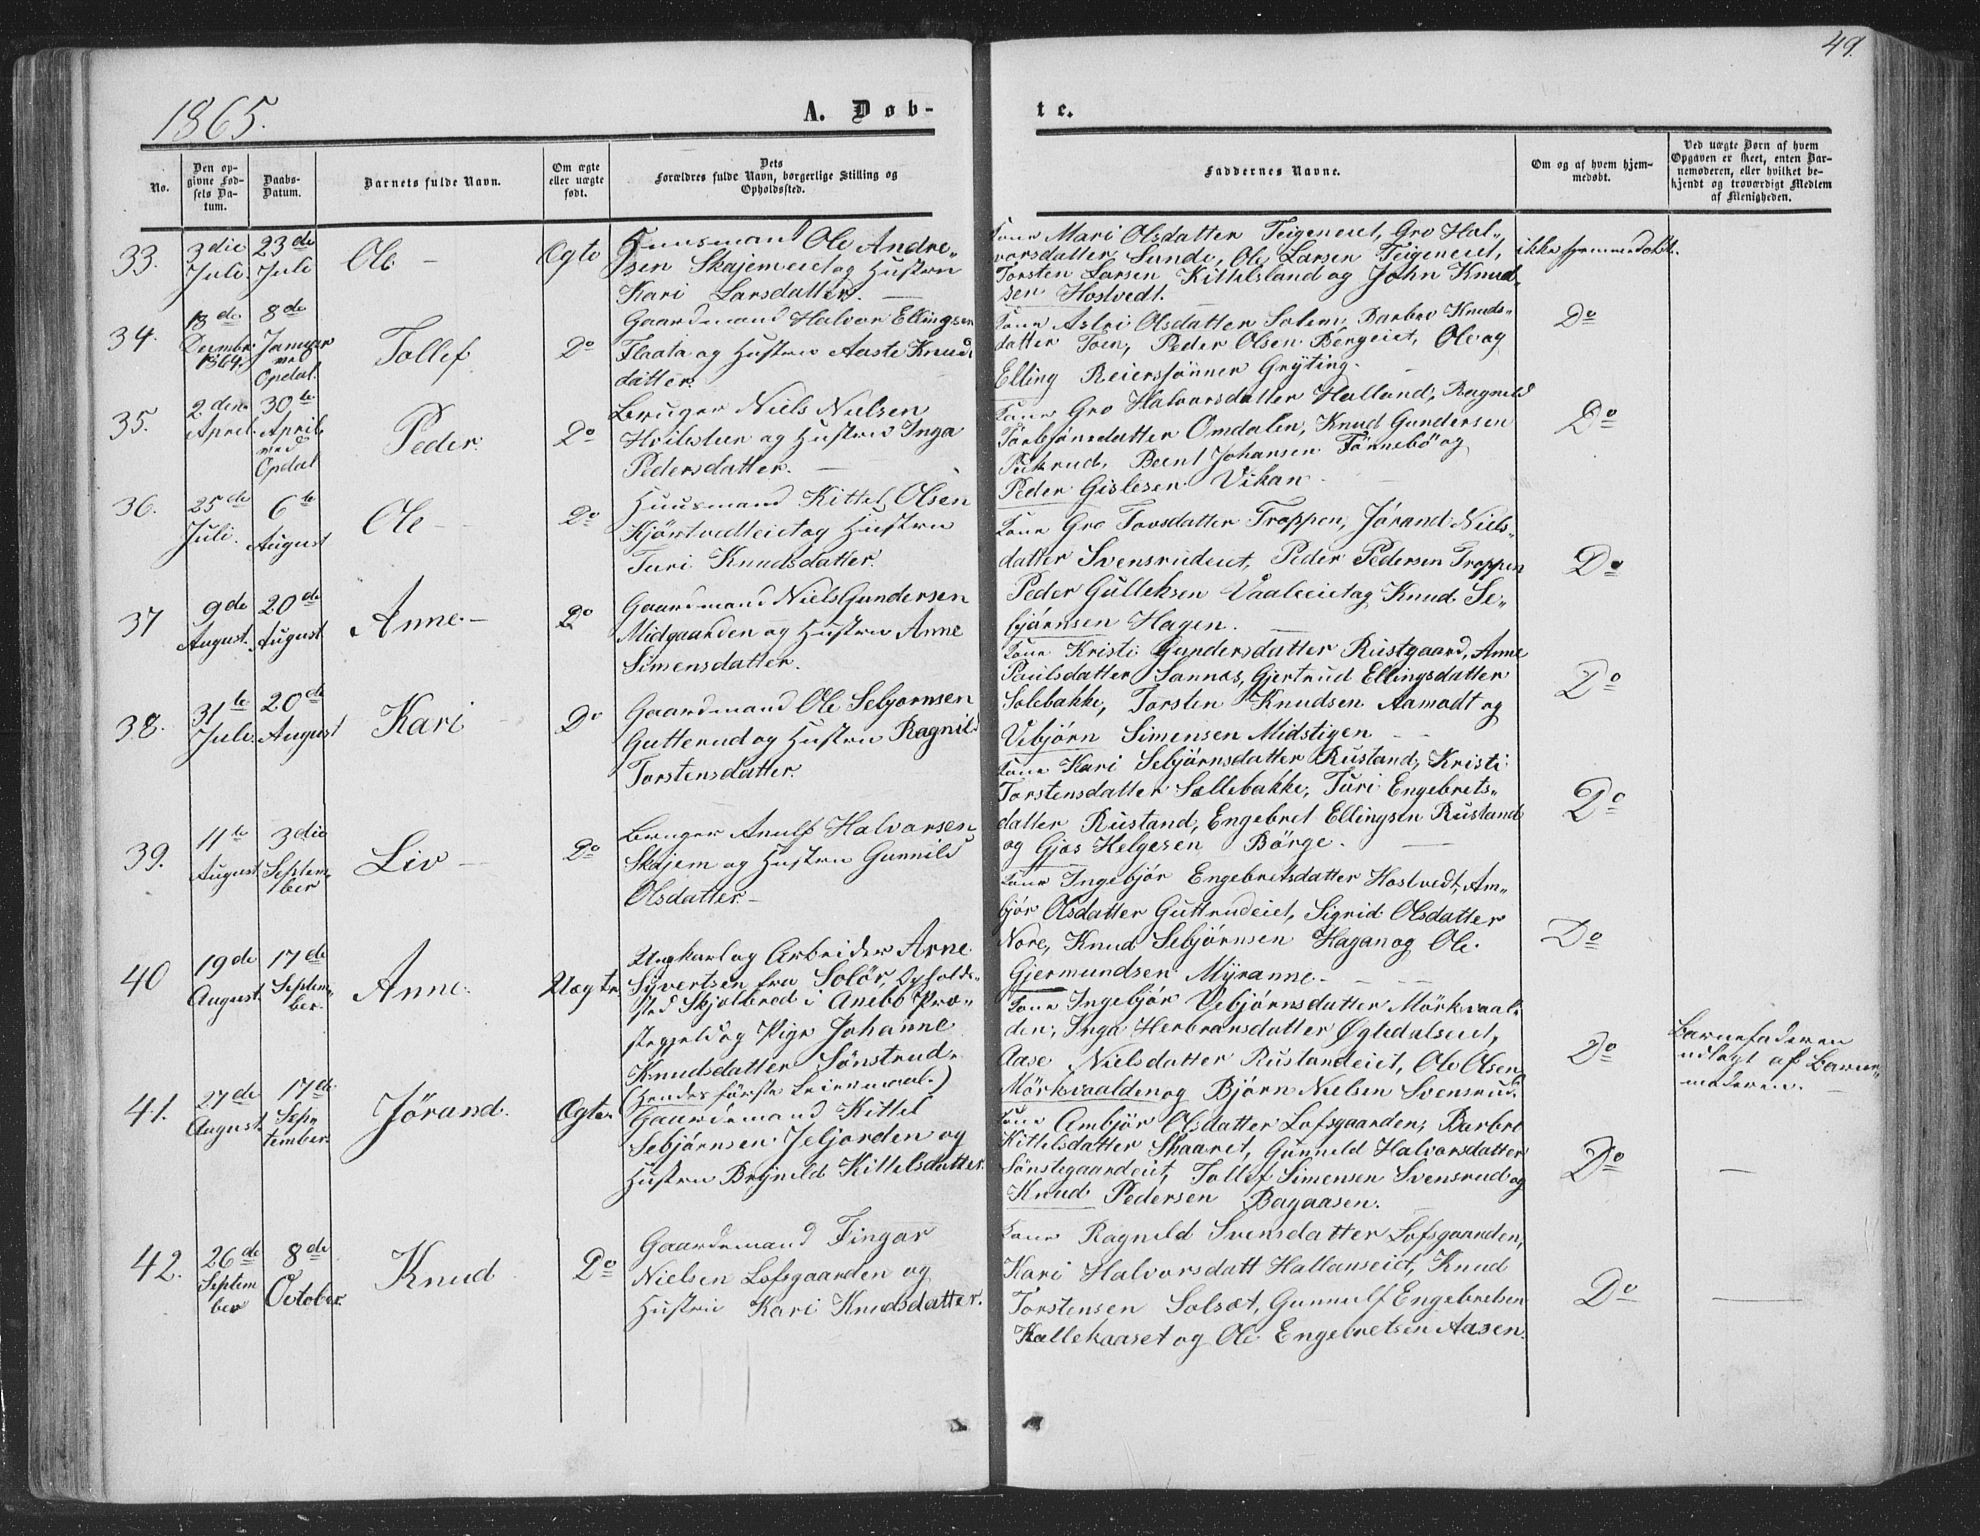 49.
1865.
A. Døb-
te.
No.
Den op-
givne Fød-
sels Da-
tum.
Daabs-
Datum.
Barnets fulde Navn.
Om ægte
eller uægte
født.
Dets
Forældres fulde Navn, borgerlige Stilling og
Opholdssted.
Faddernes Navne.
Om og af hvem hjem-
medøbt.
Ved uægte Børn af hvem
Opgaven er skeet, enten Bar-
nemoderen, eller hvilket be-
kjendt og troværdigt Medlem
af Menigheden.
33.
3die
Juli
23de
Juli
Ole
Ægte
Huusmand Ole Andre-
sen Skajemeiet og Hustru
Kari Larsdatter.
Mari Olsdatter Teigeneiet, Gro Hal-
vorsdatter Sunde, Ole Larsen Teigeneiet,
Torsten Larsen Kittelsland og John Knud-
sen Hostvedt.
ikke hjemmedøbt.
34.
18de
Decmbr.
1864.
8de
Januar
ved
Opdal.
Tollef
Do
Gaardmand Halvor Ellingsen
Flaata og Hustru Aaste Knuds
datter.
Astri Olsdatter Solem, Barbro Knuds-
datter Toen, Peder Olsen Bergeiet, Ole og
Elling Reiersønner Gryting.
Do
35.
2den
April
30te
April
ved
Opdal
Peder
Do
Bruger Niels Nielsen
Hvilesteen og Hustru Inga
Pedersdatter.
Gro Halvorsdatter Halland, Ragnild
Torbjønsdatter Omdalen, Knud Gundersen
Peikrud, Bernt Johansen Tønnebö og
Peder Gislesen Vikan
Do
36.
25de
Juli.
6te
August
Ole
Do
Huusmand Kittel Olsen
Kjørstvedteiet og Hustru
Turi Knudsdatter.
Gro Tovsdatter Troppen, Jörand Niels-
datter Svensrudeiet, Peder Pedersen Troppen
Peder Gulleksen Vaaleeiet og Knud Se-
bjørnsen Hagen.
Do
37
9de
August.
20de
August
Anne
Do
Gaardmand Niels Gundersen
Midgaarden og Hustru Anne
Simensdatter.
Kristi Gundersdatter Rustgaard, Anne
Paulsdatter Sannes, Gjertrud Ellingsdatter
Solebakke, Torsten Knudsen Aamodt og
Vebjörn Simensen Midstigen
Do
38.
31te
Juli.
20de
August
Kari
Do
Gaardmand Ole Sebjornsen
Gutterud og Hustru Ragnild
Torstensdatter.
Kari Sebjørnsdatter Rustand, Kristi
Torstensdatter Sollebakke, Turi Engebrets-
datter Rustand, Engebret Ellingsen Rustand
og Gjøs Helgesen Börge.
Do
39.
11te
August
3die
Septem-
ber
Liv
Do
Bruger Anulf Halvorsen
Skajem og Hustru Gunnild
Olsdatter.
Ingebjör Engebretsdatter Hostvedt, Am-
björ Olsdatter Guttrudeiet, Sigrid Olsdatter
Nore, Knud Sebjørnsen Hagan og Ole
Gjermundsen Myranne.
Do
40
19de
August
17de
Septem-
ber.
Anne.
Uægte.
Ungkarl og Arbeider Arne
Syvertsen fra Solör, Opholds-
sted Skjølbred i Anebo Præ-
stegjeld og Pige Johanne
Knudsdatter Sönstrud.
(Hendes första Leiermaal.)
Ingebjör Vebjørnsdatter Mörkvaal-
den, Inga Herbransdatter Øgledalseiet,
Aase Nielsdatter Rustandeiet, Ole Olsen
Mörkvaalden og Bjørn Nielsen Svensrud.
Do
Barnefaderen
udlagt af Barne-
moderen.
41.
27de
August
17de
Sep-
tember.
Jörand.
Ægte.
Gaardmand Kittel
Sebjørnsen Jeljorden og
Hustru Brynild Kittelsdatter.
Ambjör Olsdatter Lofsgaarden, Barbro
Kittelsdatter Skaaret, Gunnild Halvorsdatter
Sönstegaardeiet, Tollef Simensen Svensrud og
Knud Pedersen Bagaasen.
Do
42.
26de
Septem
ber
8de
October.
Knud
Do
Gaardmand Fingar
Nielsen Lofsgaarden og
Hustru Kari Knudsdatter.
Ragnild Svensdatter Lofsgaarden,
Kari Halvorsdatt Hallanseiet, Knud
Torstensen Solsæt, Gunnulf Engebretsen
Kallekaaset og Ole Engebretsen Aasen.
Do